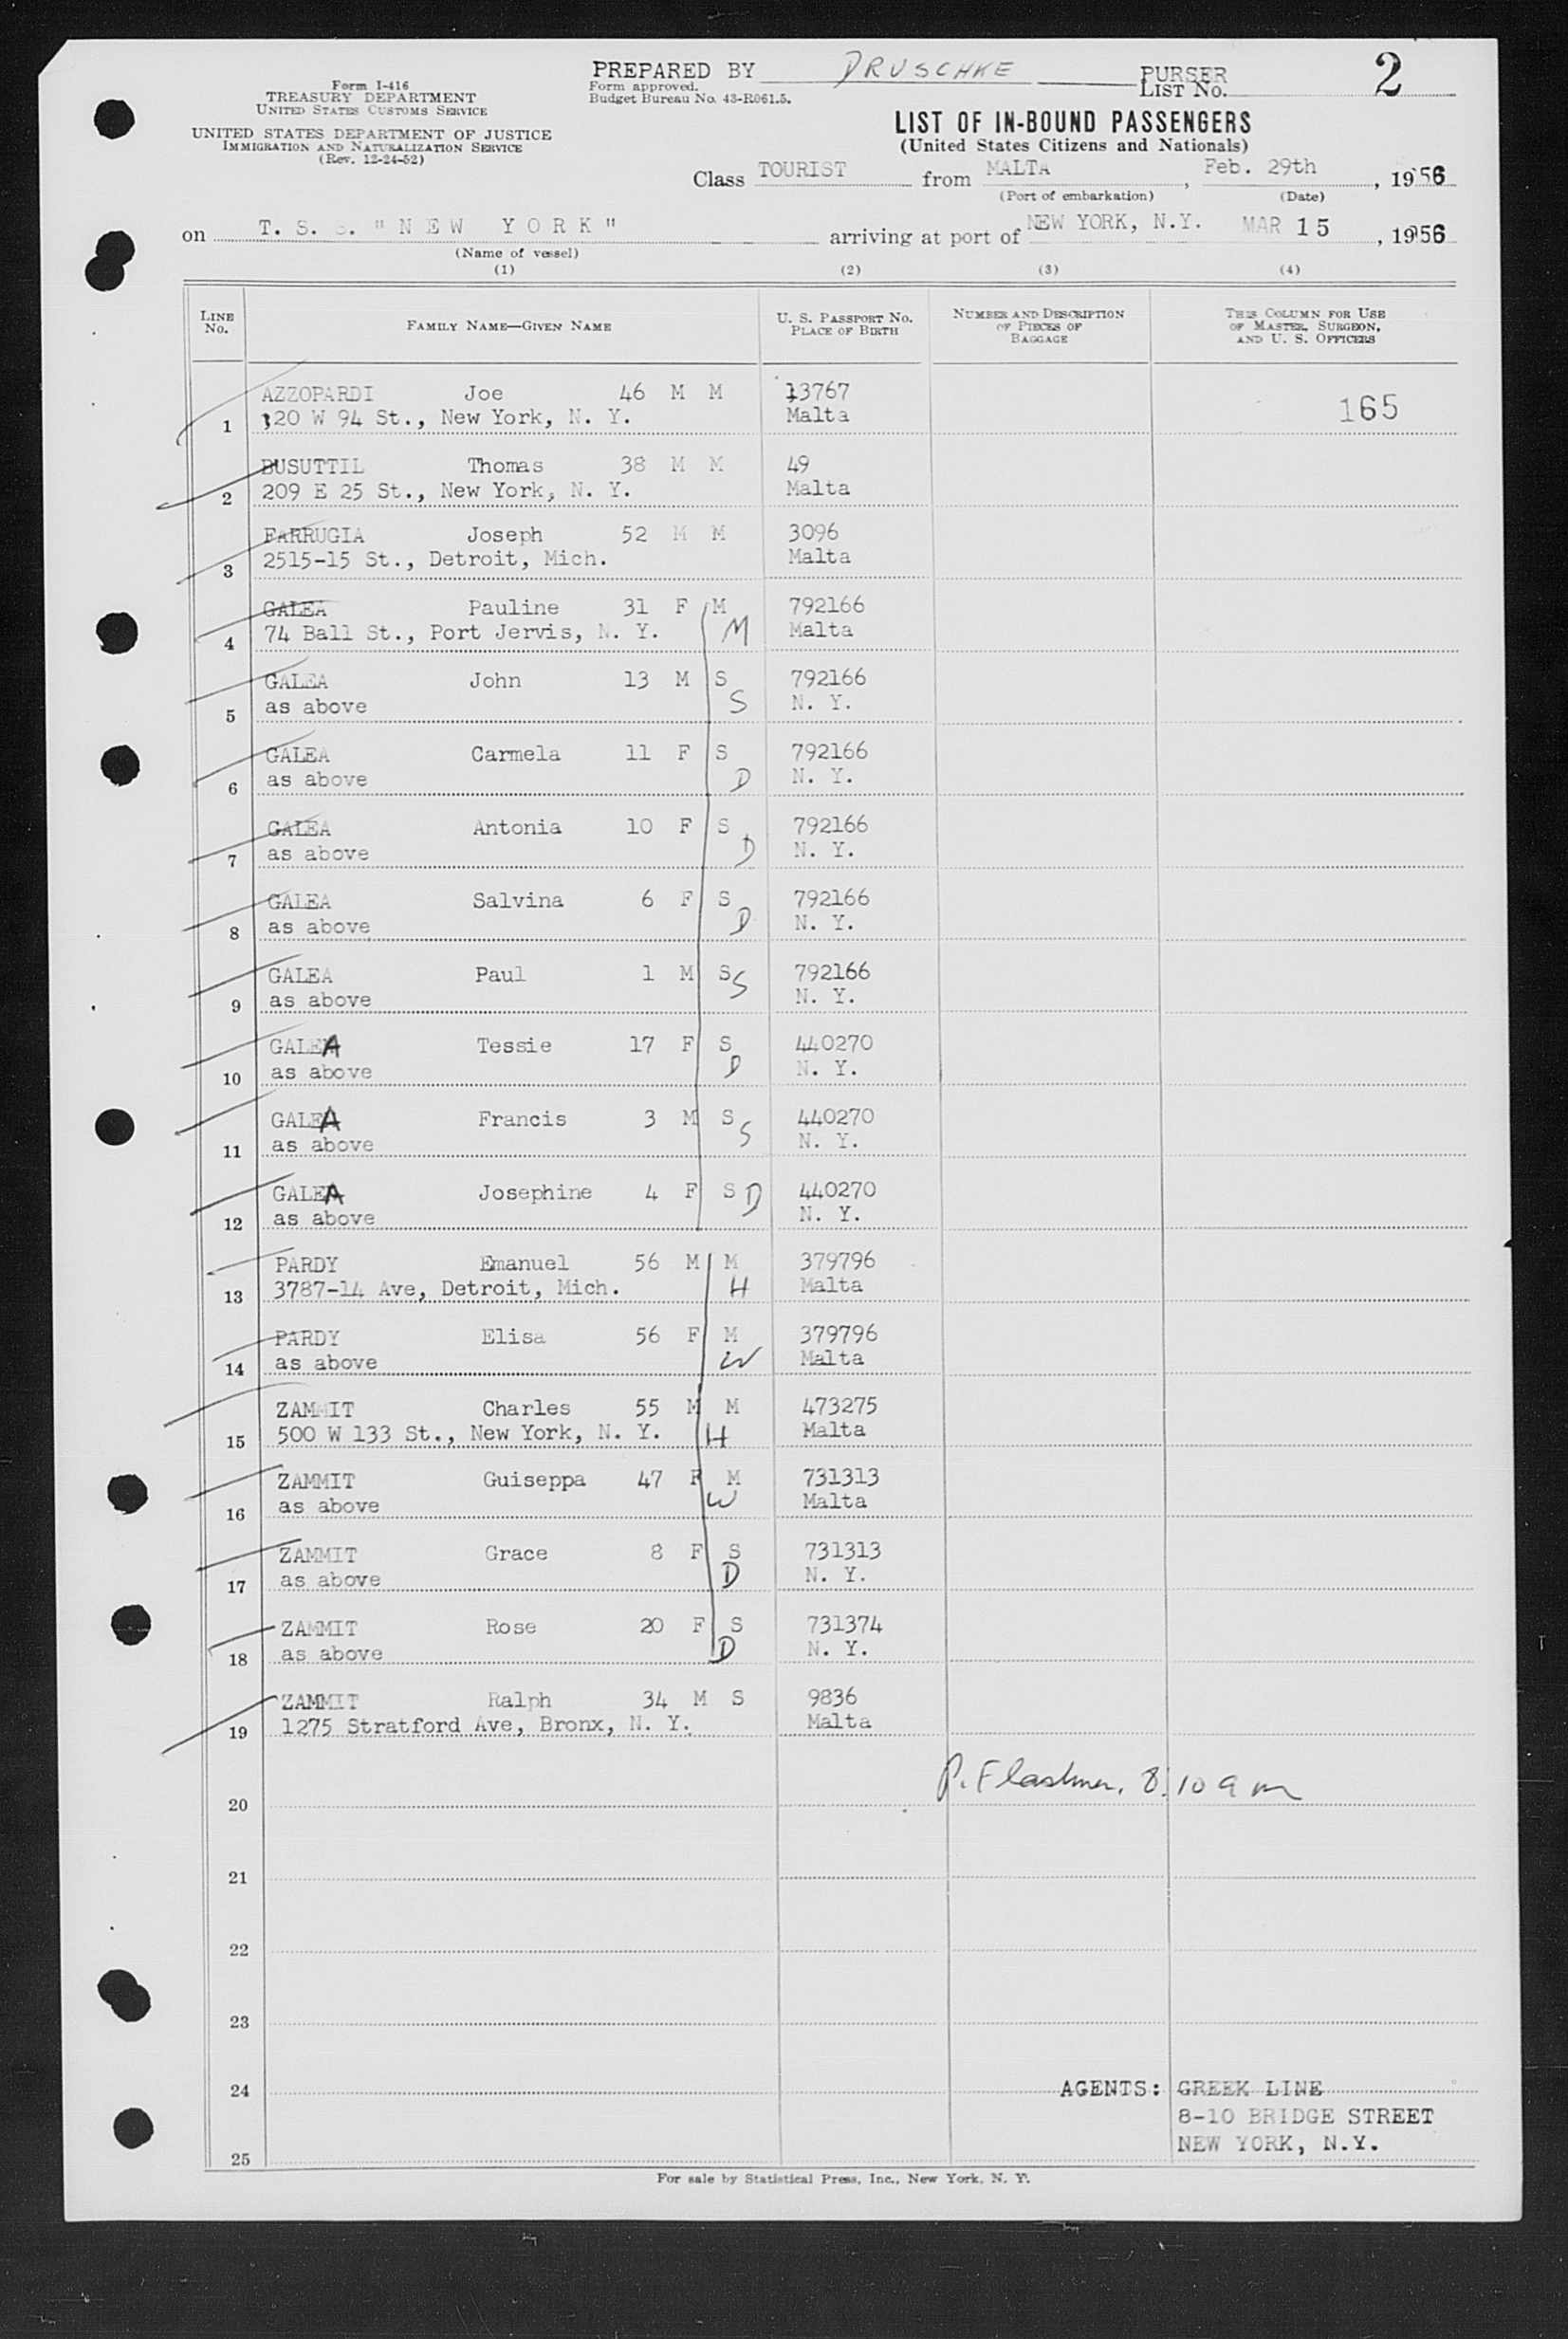 PREPARED BY DRUSCHKE PURSER
Form I-416
TREASURY DEPARTMENT
UNITED STATES CUSTOMS SERVICE
UNITED STATES DEPARTMENT OF JUSTICE
IMMIGRATION AND NATURALIZATION SERVICE
(Rev. 12-24-52)
Form approved.
Budget Bureau No. 43-R061.5.
LIST NO. 2
LIST OF IN-BOUND PASSENGERS
(United States Citizens and Nationals)
Class TOURIST from MALTA, Feb. 29th, 1956
(Port of embarkation) (Date)
on T. S. S. "NEW YORK" arriving at port of NEW YORK, N.Y. MAR 15, 1956
(Name of vessel)
(1) (2) (3) (4)
LINE NO. FAMILY NAME—GIVEN NAME U. S. PASSPORT NO. PLACE OF BIRTH NUMBER AND DESCRIPTION OF PIECES OF BAGGAGE THIS COLUMN FOR USE OF MASTER, SURGEON, AND U. S. OFFICERS
AZZOPARDI Joe 46 M M 13767 165
1 320 W 94 St., New York, N. Y. Malta
BUSUTTIL Thomas 38 M M 49
2 209 E 25 St., New York, N. Y. Malta
FARRUGIA Joseph 52 M M 3096
3 2515-15 St., Detroit, Mich. Malta
GALEA Pauline 31 F M 792166
4 74 Ball St., Port Jervis, N. Y. M Malta
GALEA John 13 M S 792166
5 as above S N. Y.
GALEA Carmela 11 F S 792166
6 as above D N. Y.
GALEA Antonia 10 F S 792166
7 as above D N. Y.
GALEA Salvina 6 F S 792166
8 as above D N. Y.
GALEA Paul 1 M S 792166
9 as above S N. Y.
GALEA Tessie 17 F S 440270
10 as above D N. Y.
GALEA Francis 3 M S 440270
11 as above S N. Y.
GALEA Josephine 4 F S D 440270
12 as above N. Y.
PARDY Emanuel 56 M M 379796
13 3787-14 Ave, Detroit, Mich. H Malta
PARDY Elisa 56 F M 379796
14 as above W Malta
ZAMMIT Charles 55 M M 473275
15 500 W 133 St., New York, N. Y. H Malta
ZAMMIT Guiseppa 47 F M 731313
16 as above W Malta
ZAMMIT Grace 8 F S 731313
17 as above D N. Y.
ZAMMIT Rose 20 F S 731374
18 as above D N. Y.
ZAMMIT Ralph 34 M S 9836
19 1275 Stratford Ave, Bronx, N. Y. Malta
P. 8:10 am
20
21
22
23
24 AGENTS: GREEK LINE
8-10 BRIDGE STREET
NEW YORK, N.Y.
25
For sale by Statistical Press, Inc., New York, N. Y.